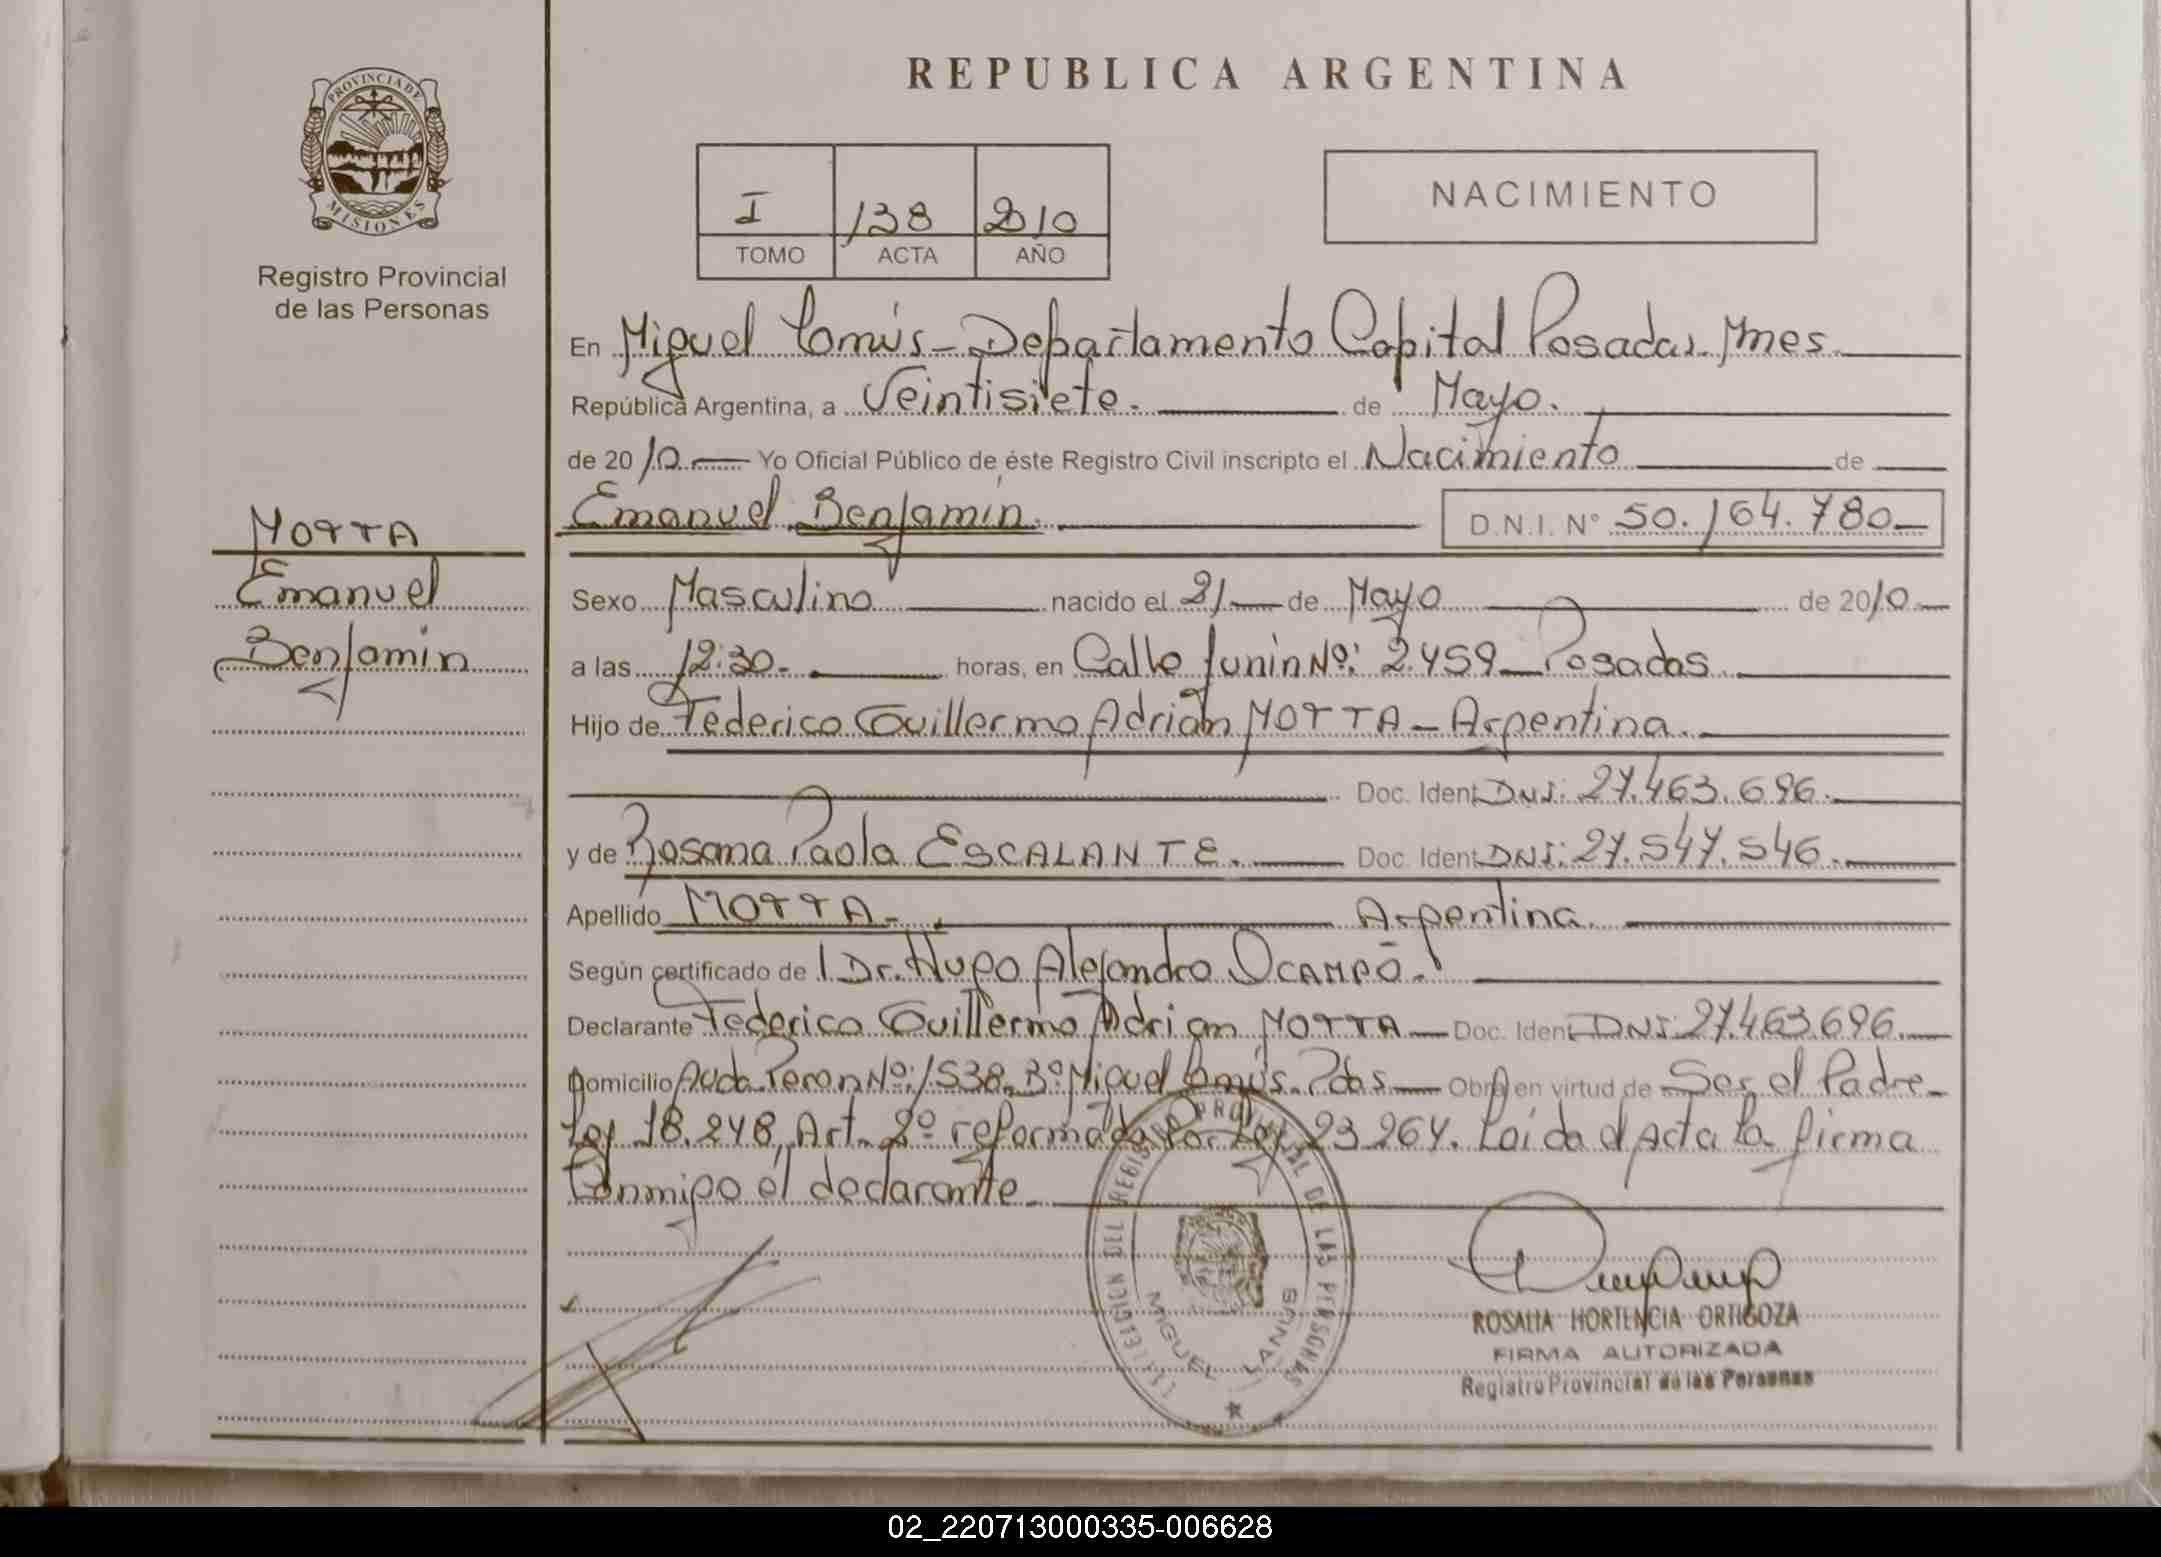 PROVINCIA DE
MISIONES
Registro Provincial
de las Personas
REPUBLICA ARGENTINA
I 138 2010
TOMO ACTA AÑO
NACIMIENTO
En Miguel Lanús - Departamento Capital Posadas. Mnes
República Argentina, a Veintisiete. de Mayo.
de 2010 Yo Oficial Público de éste Registro Civil inscripto el Nacimiento de
Emanuel Benjamin. D.N.I. N° 50.164.780
MOTTA
Emanuel
Benjamin
Sexo Masculino nacido el 21 de Mayo de 2010
a las 12:30. horas, en Calle Junin Nº: 2.459 Posadas
Hijo de Federico Guillermo Adrián MOTTA - Argentina.
Doc. Ident DNI: 27.463.696.
y de Rosana Paola ESCALANTE. Doc. Ident DNI: 27.547.546.
Apellido MOTTA. Argentina.
Según certificado de Dr. Hugo Alejandro OCAMPO.
Declarante Federico Guillermo Adrian MOTTA Doc. Ident DNI: 27.463.696.
Domicilio Avda. Peron Nº: 1538. Bº Miguel Lanús. Pdas Obra en virtud de Ser el Padre
Ley 18.248, Art. 2º reformada Por Ley 23.264. Leida el Acta la firma
Conmigo el declarante.
REGISTRO PROVINCIAL DE LAS PERSONAS
MIGUEL LANUS
ROSALIA HORTENCIA ORTIGOZA
FIRMA AUTORIZADA
Registro Provincial de las Personas
02_220713000335-006628